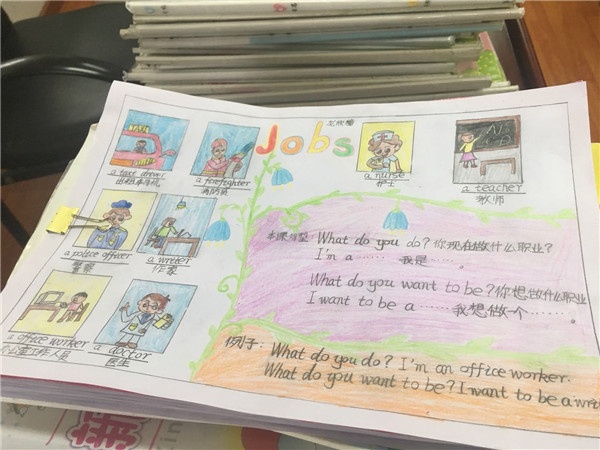 Jobs
a taxi driver
出租车司机
a firefighter
消防员
a nurse
护士
a teacher
教师
a police officer
警察
a writer
作家
a office worker
办公室工作人员
a doctor
医生
What do you do? 你现在做什么职业?
I'm a ...... 我是......
What do you want to be? 你想做什么职业
I want to be a ...... 我想做个......。
例子: What do you do? I'm an office worker.
What do you want to be? I want to be a wri